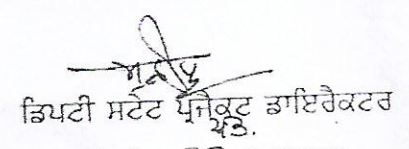 ਡਿਪਟੀ ਸਟੇਟ ਪ੍ਰੋਜੈਕਟ ਡਾਇਰੈਕਟਰ